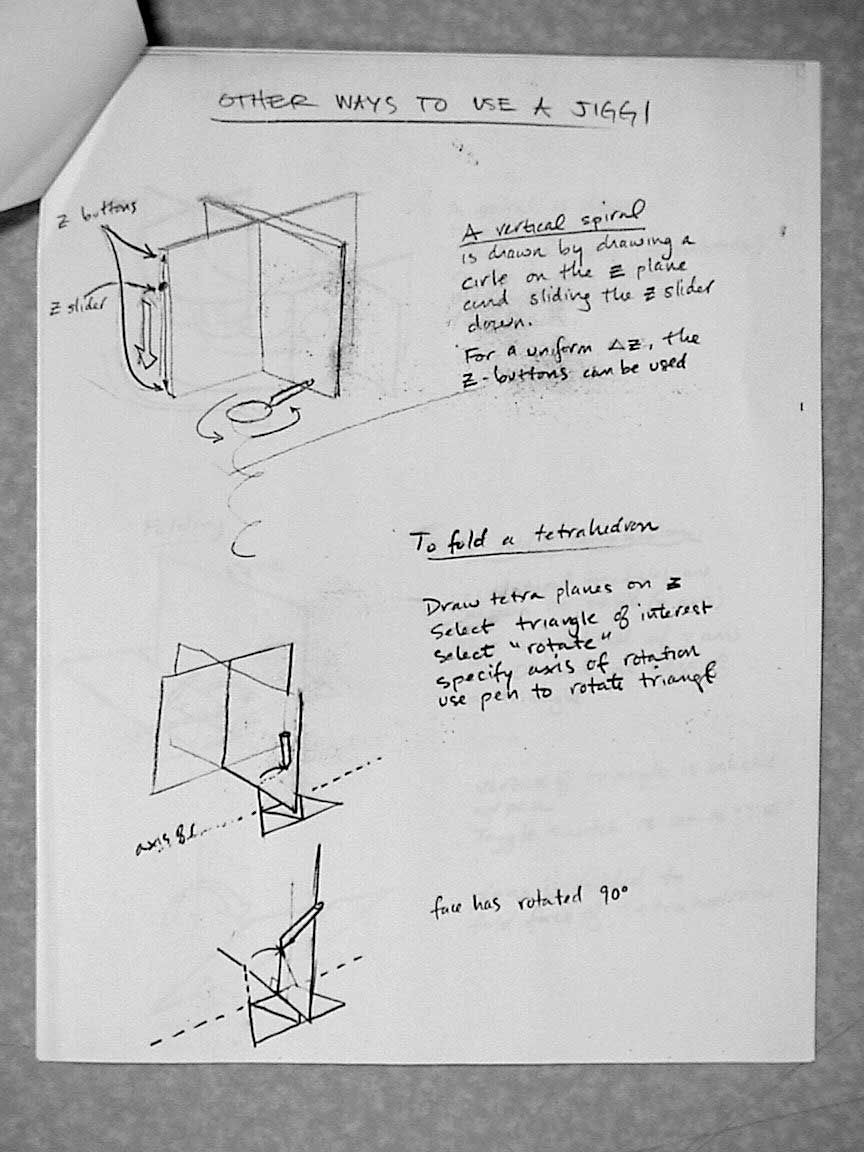 OTHER WAYS TO USE A JIGGI
Z buttons
Z slider
A vertical spiral
is drawn by drawing a
cirle on the Z plane
and sliding the Z slider
down.
For a uniform ΔZ, the
Z-buttons can be used
To fold a tetrahedron
Draw tetra planes on Z
Select triangle of interest
select "rotate"
specify axis of rotation
use pen to rotate triangle
axis of
face has rotated 90°